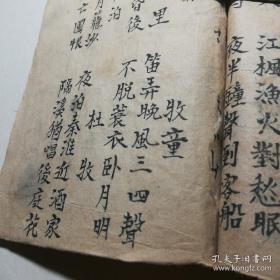 江楓漁火對愁眠
夜半鐘聲到客船
牧童
里 笛弄晚風三四聲
昏後 不脫蓑衣卧月明
泊 杜牧
月籠沙 夜泊秦淮近酒家
亡國恨 隔溪猶唱後庭花
孔夫子旧书网